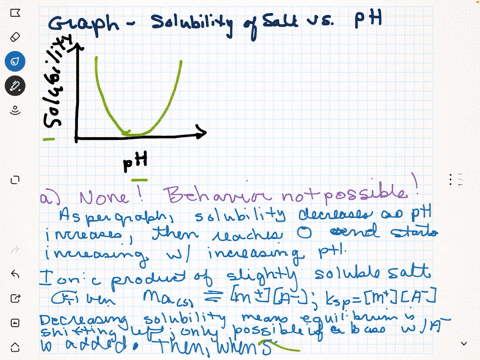 Graph - Solubility of Salt vs. pH
Solubility
pH
a) None! Behavior not possible!
As per graph, solubility decreases as pH
increases, then reaches 0 and starts
increasing w/ increasing pH.
Ionic product of slightly soluble salt
Given MA(s) ⇌ [M+][A-]; Ksp=[M+][A-]
Decreasing solubility means equilibrium is
shifting left; only possible if a base w/ A-
is added. Then, when S